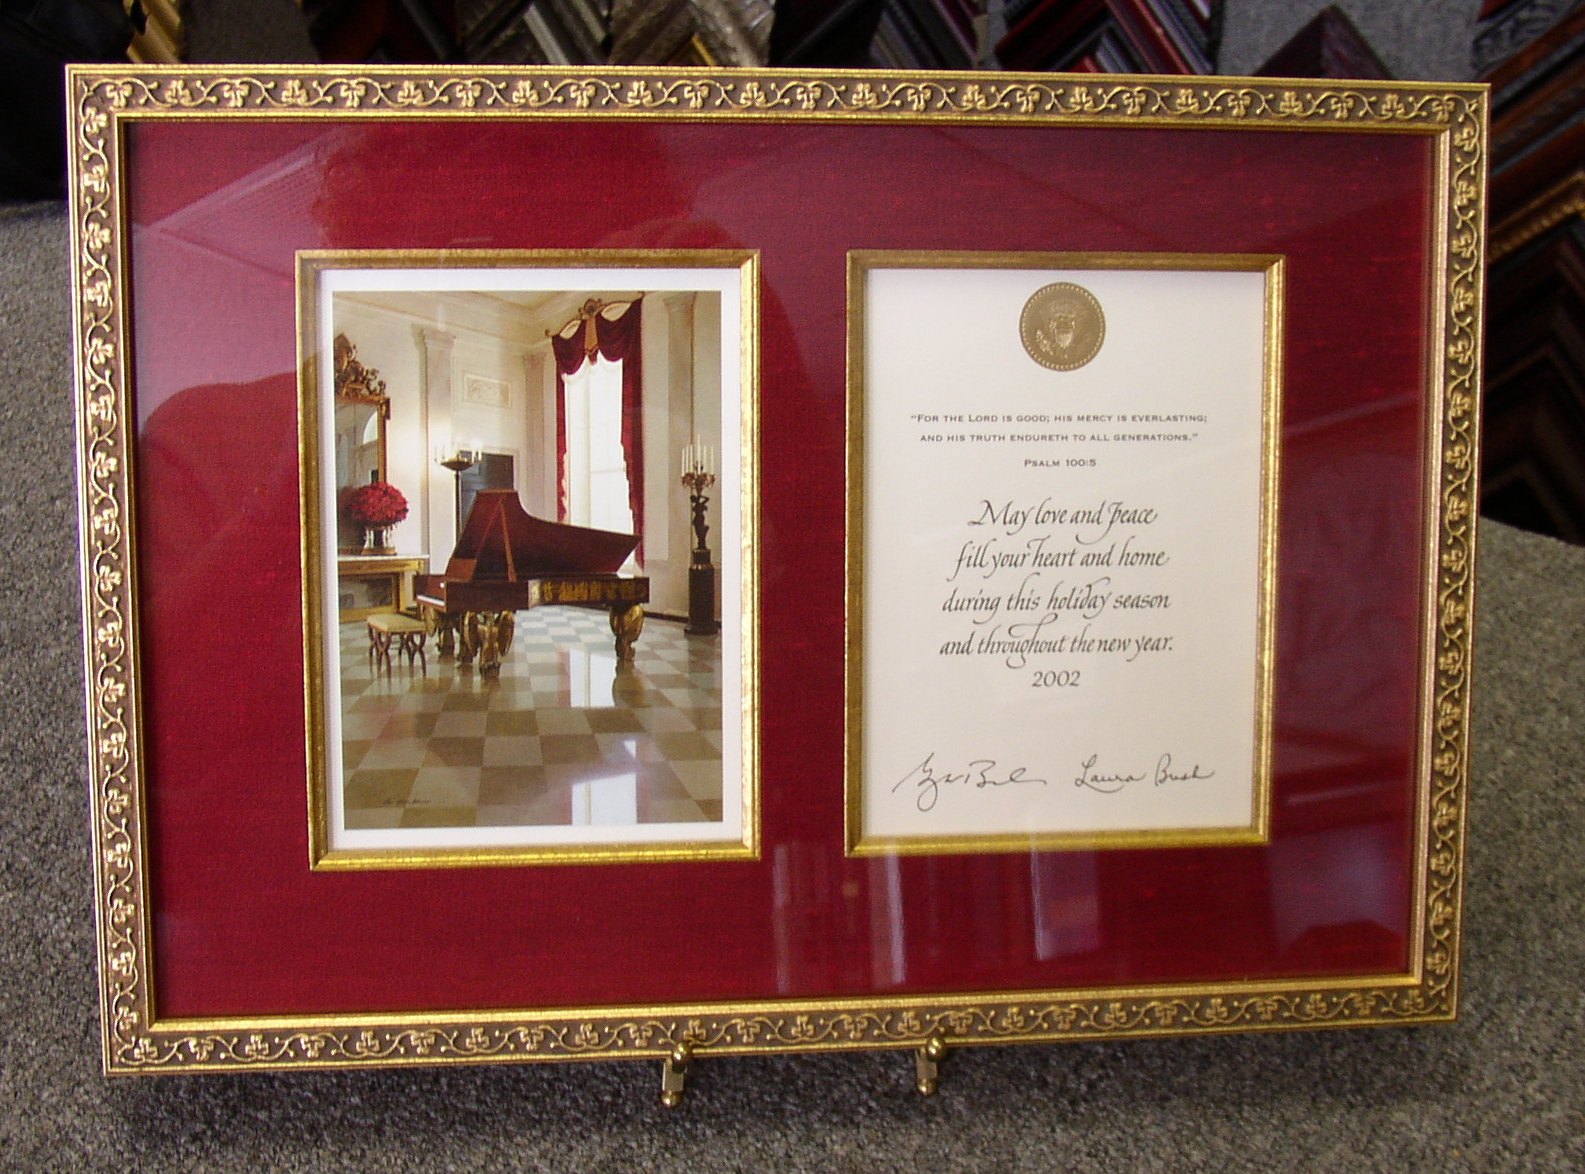 “For the Lord is good; his mercy is everlasting;
and his truth endureth to all generations.”
Psalm 100:5
May love and peace
fill your heart and home
during this holiday season
and throughout the new year.
2002
Laura Bush